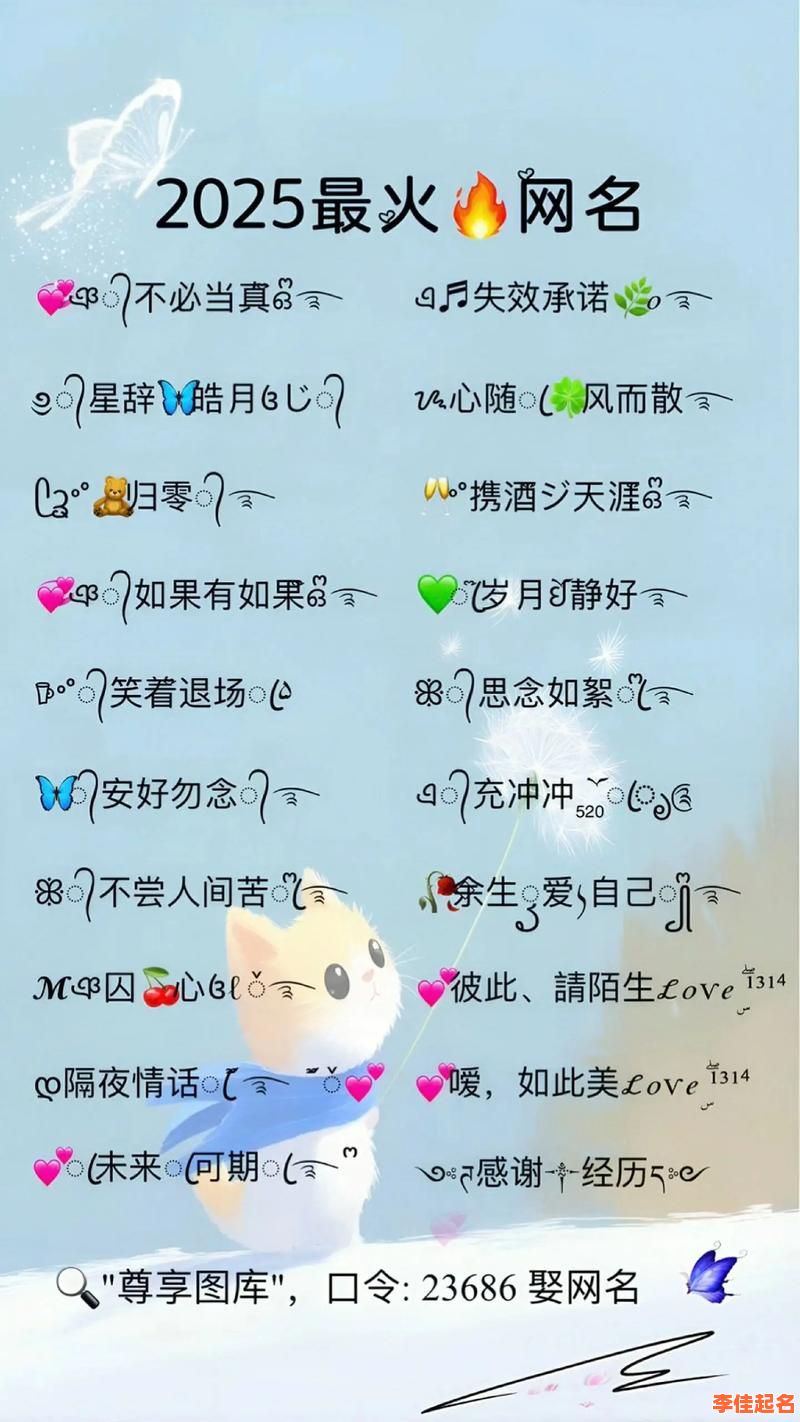 2025最火🔥网名
💞ঞ᭄不必当真ꦿ࿐
এ♬失效承诺🌿০࿐
૭᭄星辞🦋皓月ଓじ᭄
ᝰ心随ꦼ🍀风而散࿐
ᥫᩣ°🧸归零᭄࿐
🥂°携酒ジ天涯ꦿ࿐
💞ঞ᭄如果有如果ꦿ࿐
💚ꦼ岁月ꦿ静好࿐
᭄笑着退场ꦼ
ꕥ᭄思念如絮ꦿ࿐
🦋᭄安好勿念᭄࿐
এ᭄充冲冲520
ꕥ᭄不尝人间苦ꦿ࿐
🥀余生爱自己࿐
ℳঞ囚🍒心ଓℓ࿐
💕彼此、請陌生ℒℴѵℯ1314
ღ隔夜情话࿐💕
💕嗳，如此美ℒℴѵℯ1314
💕ꦼ未来ꦼ可期ꦼ࿐
感谢༒经历
🔍"尊享图库"，口令: 23686 娶网名
李佳起名